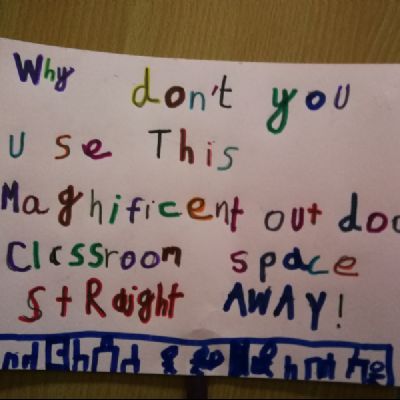 Why don't you
use This
Magnificent out doo
Classroom space
StRaight AWAY!